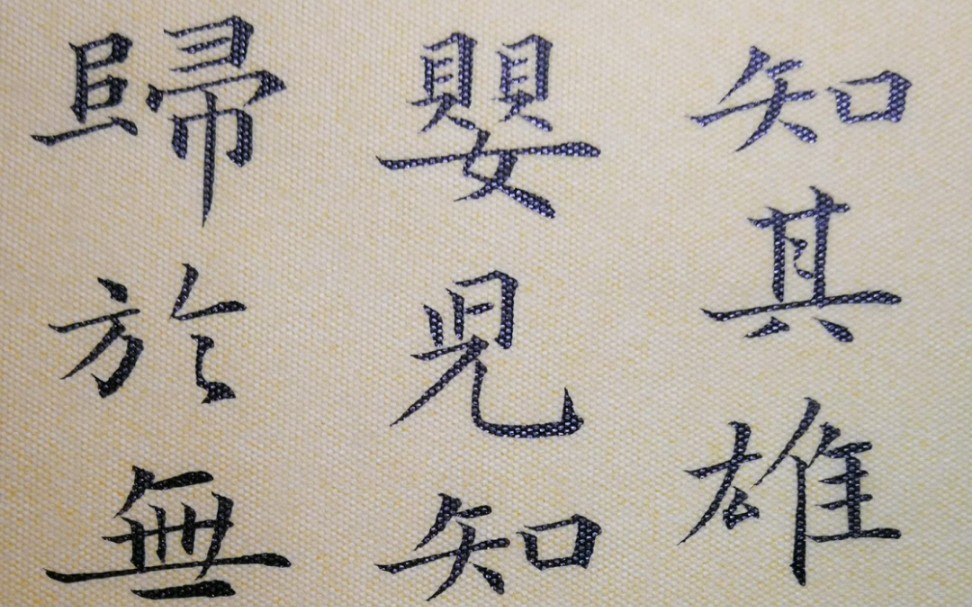 知其雄
嬰兒知
歸於無